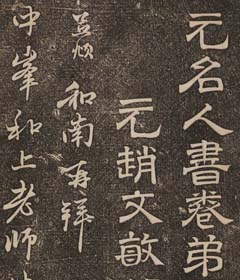 元名人書卷弟
元趙文敏
孟頫和南再拜
中峯和上老師